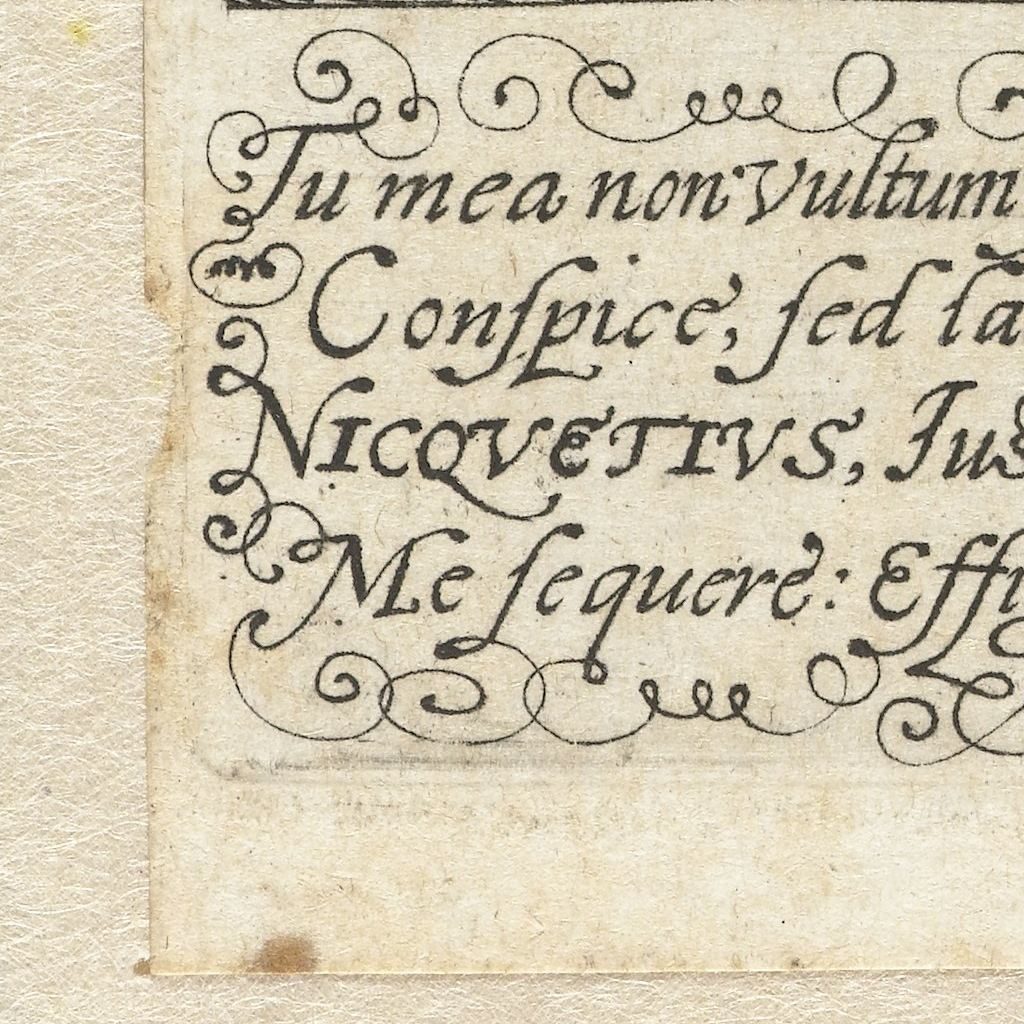 Tu mea non vultum
Conſpice, ſed la
NICQVETIVS, Ius
Me ſequere: Effi